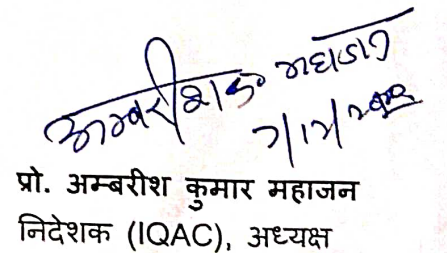 अम्बरीश कु० महाजन
प्रो. अम्बरीश कुमार महाजन
निदेशक (IQAC), अध्यक्ष